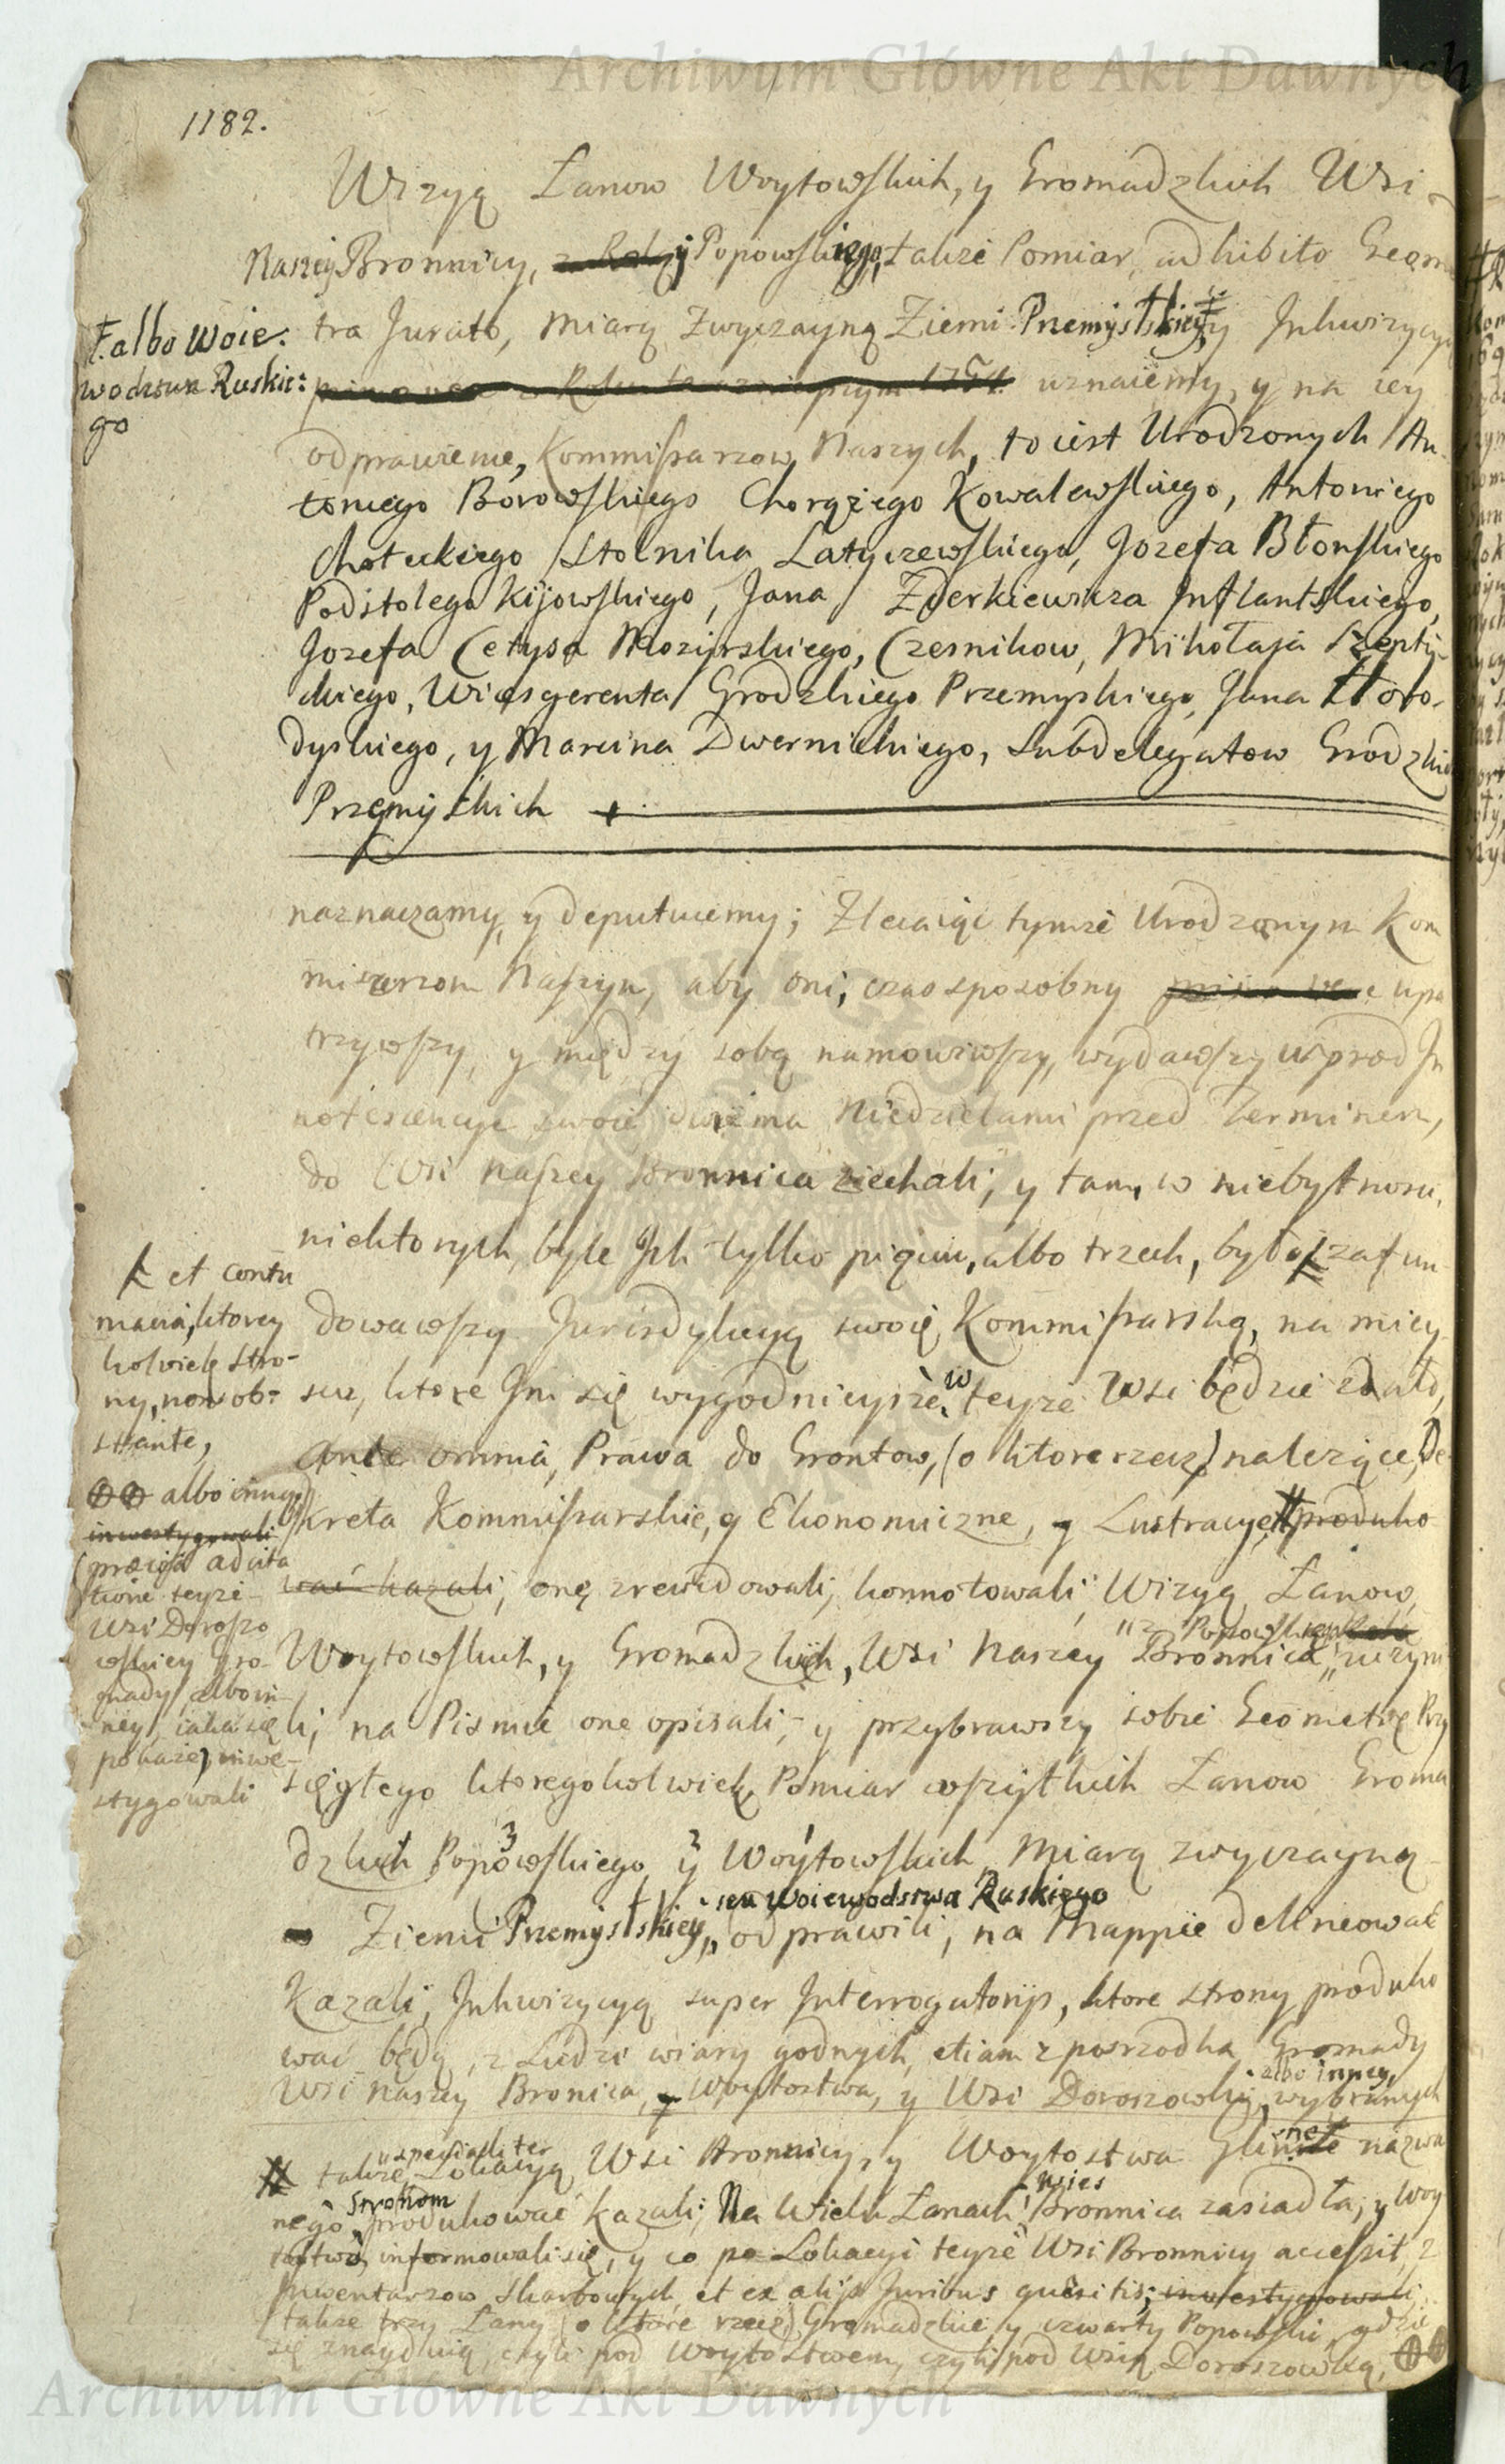 Archiwum Główne Akt Dawnych
1182.
Wizyą Łanow Woytowskich, y Gromadzkich Wsi
Naszey Bronnicy, y Popowskiego, także Pomiar, adhibito Geom
tra Jurato, miarą Zwyczayną Ziemi Przemyslskiey y Inkwizycyą
‡ albo Woie:
wodztwa Ruskie:
go
1754 uznaiemy, y na iey
odprawienie, Kommissarzow Naszych, to iest Urodzonych An
toniego Borowskiego Chorążego Kowalewskiego, Antoniego
Choteckiego Stolnika Latyczewskiego, Jozefa Błonskiego
Podstolego Kijowskiego, Jana Zderkiewicza Inflantskiego,
Jozefa Cetysa Mozyrskiego, Czesnikow, Mikołaja Szepty-
ckiego, Vicesgerenta Grodzkiego Przemyskiego, Jana Horo-
dyskiego, y Marcina Dwernickiego, Subdelegatow Grodzkich
Przemyskich
naznaczamy, y deputuiemy; Zlecaiąc tymże Urodzonym Kom
misarzom Naszym, aby oni, czas sposobny upa
trzywszy, y między sobą namowiwszy, wydawszy wprzod In
notescencye swoie dwiema Niedzielami przed Terminem,
do Wsi Naszey Bronnica ziechali, y tam, w niebytnosci
niektorych, byle Ich tylko pięciu, albo trzech, było, zafun
dowawszy Jurisdykcyą swoię Kommissarską, na miey
scu, ktore Im się wygodnieysze w teyże Wsi będzie zdało,
ante omnia, Prawa do Grontow, (o ktore rzecz) należące, De
kreta Kommissarskie, y Ekonomiczne, y Lustracye, # produko
wać kazali, onę zrewidowali, konnotowali, Wizyą Łanow,
z Popowskiego
Woytowskich, y Gromadzkich, Wsi Naszey Bronnica, uczyni
li, na Pismie one opisali, y przybrawszy sobie Geometrę Przy
sięgłego ktoregokolwiek, Pomiar wszystkich Łanow Groma
dzkich Popowskiego, y Woytowskich, Miarą zwyczayną
seu Woiewodztwa Ruskiego
Ziemi Przemyslskiey, odprawili, na Mappie delineować
Kazali, Inkwizycyą super Interrogatoriis, ktore strony produko
wać będą, z Ludzi wiary godnych, etiam z posrzodka Gromady
albo inney,
Wsi Naszey Bronica, y Woytostwa, y Wsi Doroszowki, wybranych
et contu
macia, ktorey
kolwiek stro-
ny, non ob-
stante,
albo inney
inwestygowali
præviâ adcita
tione teyże
Wsi Doroszo
wskiey Gro-
mady, albo in-
ney, iaka się
pokaże, inwe-
stygowali
specialiter
# także Lokacyą Wsi Bronnicy, y Woytostwa Glinne nazwa
stronom
nego, produkować kazali; Na Wielu Łanach Wies Bronnica zasiadła, y Woy
tostwo, informowali się, y co po Lokacyi teyże Wsi Bronnicy accessit, z
Inwentarzow Skarbowych, et ex alijs Juribus quæsitis; inwestygowali,
także trzy Łany (o ktore rzecz) Gromadzkie, y czwarty Popowski, gdzie
się znayduią, czyli pod Woytostwem, czyli pod Wsią Doroszowką,
Archiwum Główne Akt Dawnych